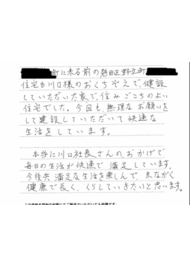 町に来る前の
住宅も川口様のおくちぞえで、建設
していただいた家で、住みごこちのよい
住宅でした。今回も無理なお願いを
して建設していただいて快適な
生活をしています。
本当に川口社長さんのおかげで
毎日の生活が快適で満足しています。
今後共満足な生活を楽しんで末ながく
健康で長く、くらしていきたいと思います。